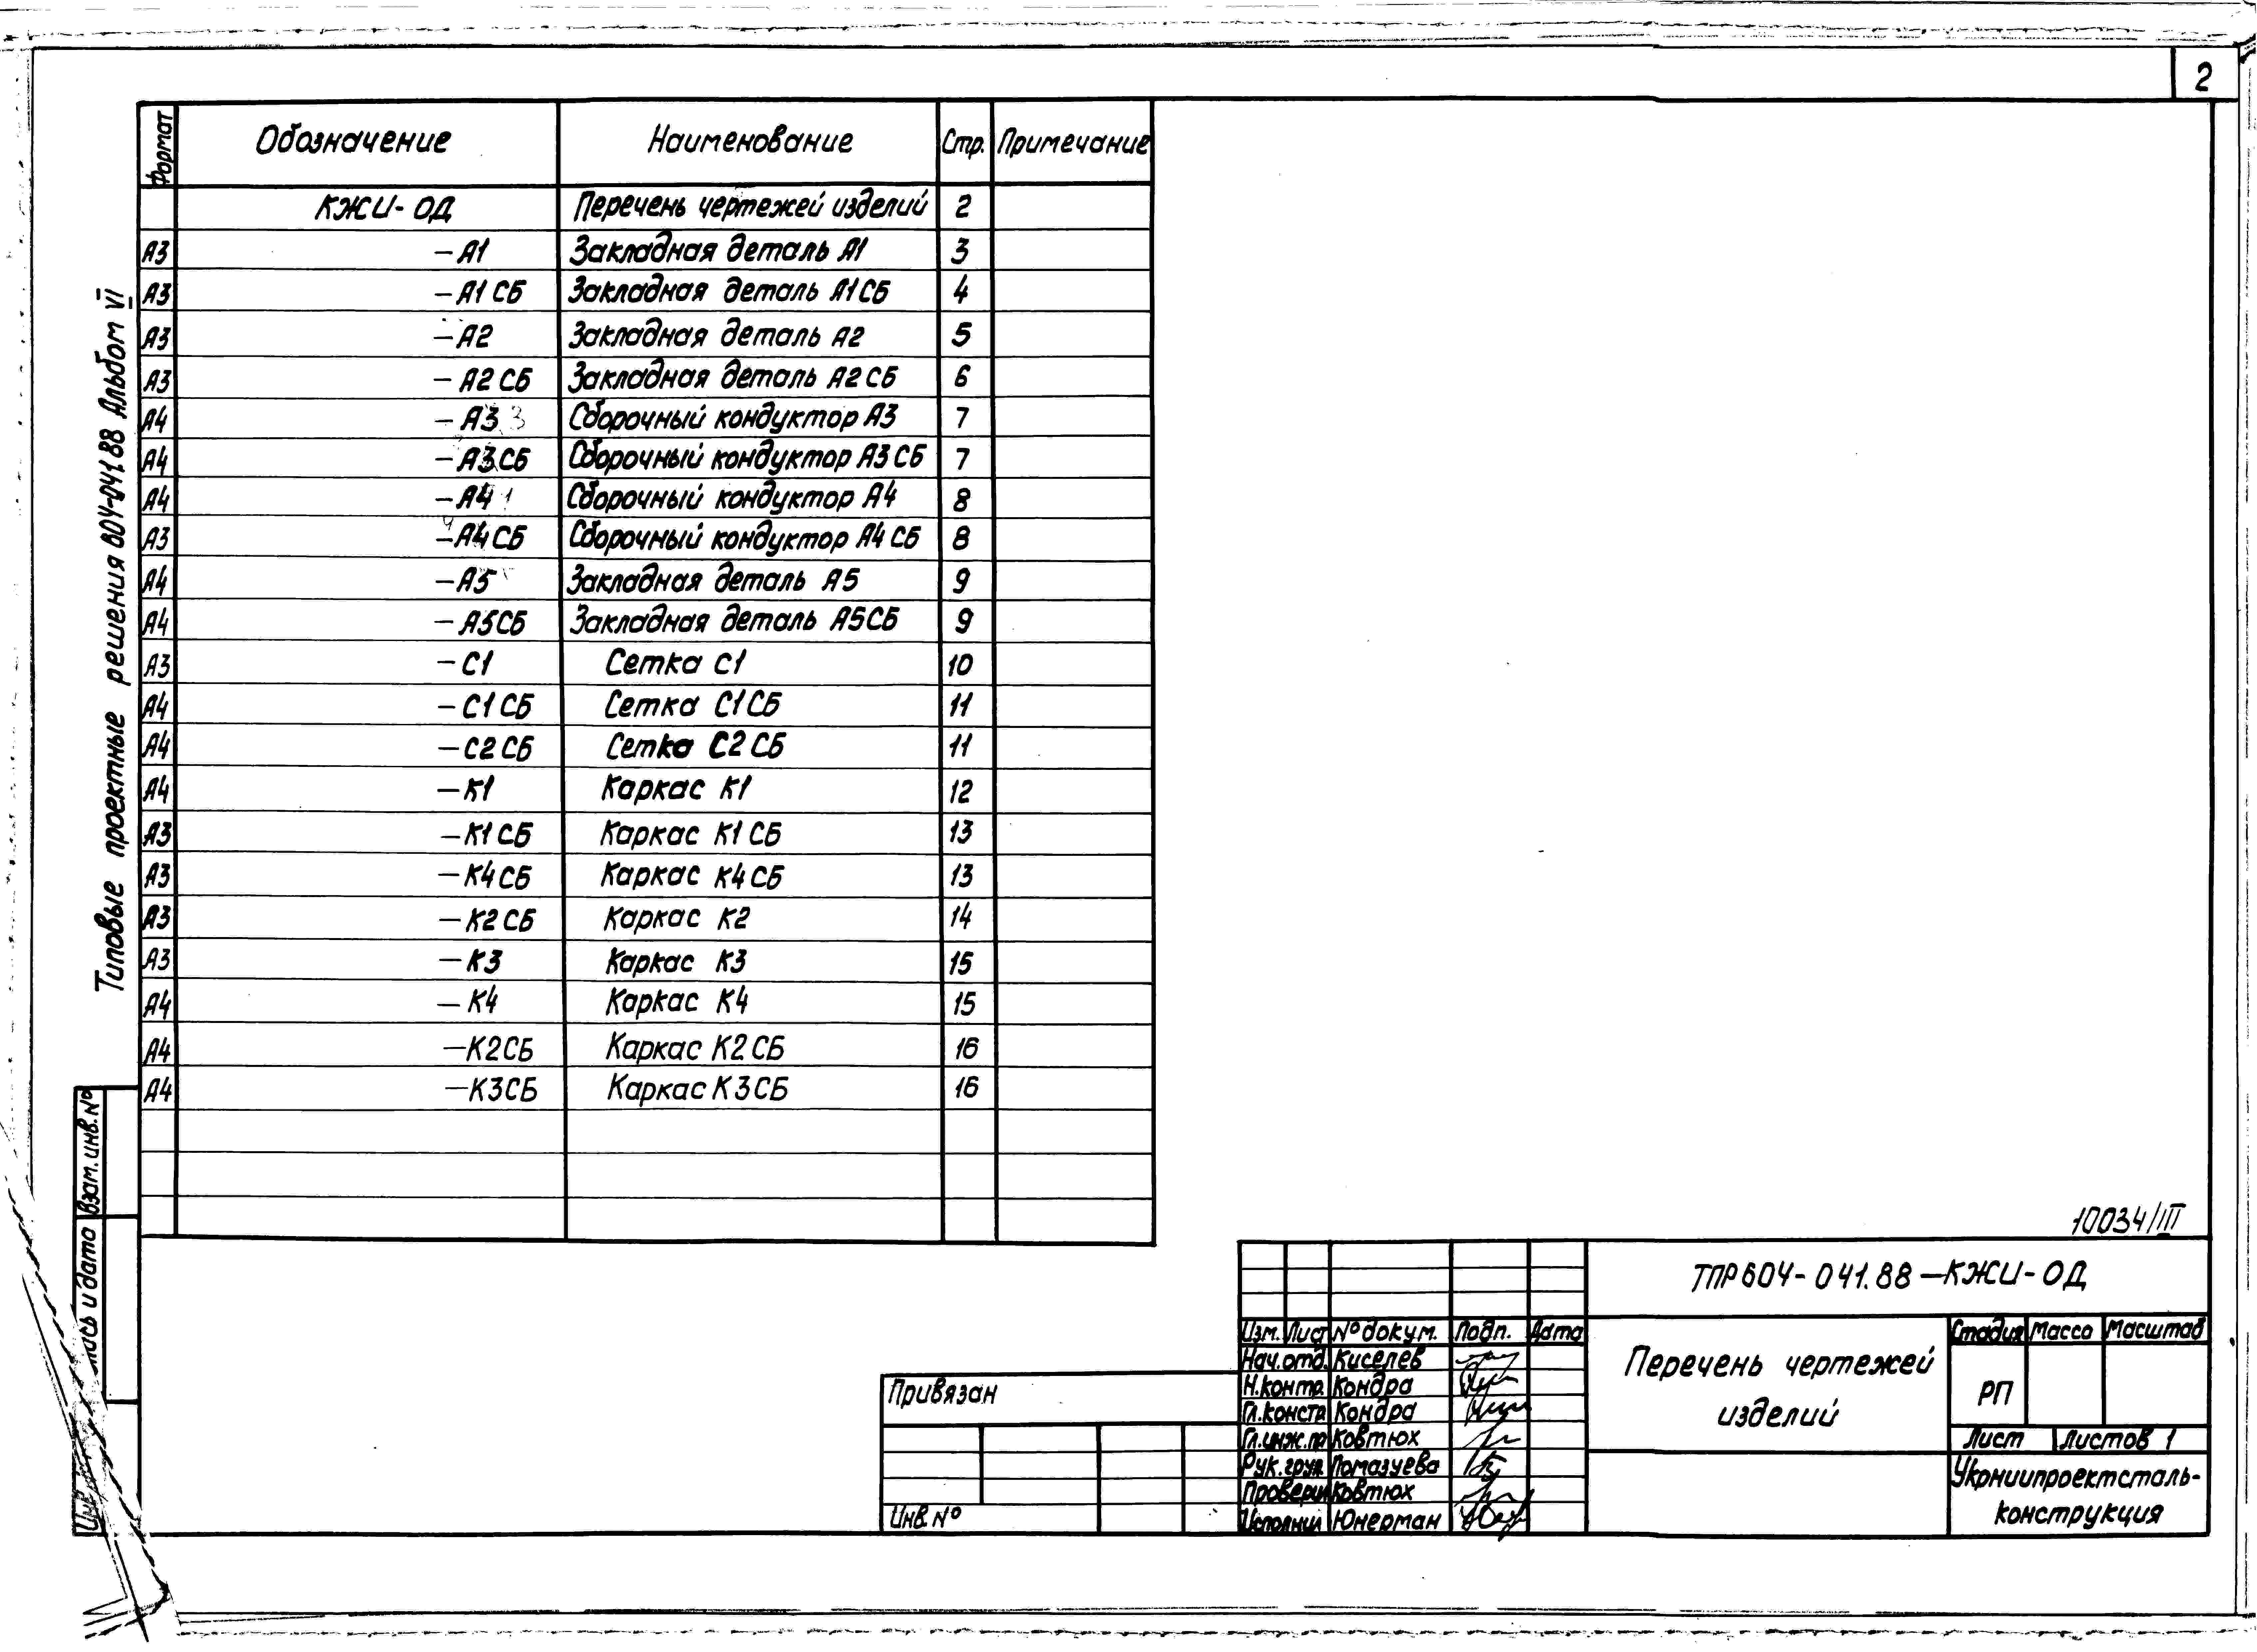 2
Формат Обозначение Наименование Стр. Примечание
КЖИ-ОД Перечень чертежей изделий 2
А3 -А1 Закладная деталь А1 3
А3 -А1СБ Закладная деталь А1СБ 4
А3 -А2 Закладная деталь А2 5
А3 -А2СБ Закладная деталь А2СБ 6
А4 -А3 Сборочный кондуктор А3 7
А4 -А3СБ Сборочный кондуктор А3СБ 7
А4 -А4 Сборочный кондуктор А4 8
А3 -А4СБ Сборочный кондуктор А4СБ 8
А4 -А5 Закладная деталь А5 9
А4 -А5СБ Закладная деталь А5СБ 9
А3 -С1 Сетка С1 10
А4 -С1СБ Сетка С1СБ 11
А4 -С2СБ Сетка С2СБ 11
А4 -К1 Каркас К1 12
А3 -К1СБ Каркас К1СБ 13
А3 -К4СБ Каркас К4СБ 13
А3 -К2СБ Каркас К2 14
А3 -К3 Каркас К3 15
А4 -К4 Каркас К4 15
А4 -К2СБ Каркас К2СБ 16
А4 -К3СБ Каркас К3СБ 16
Типовые проектные решения 604-041.88 Альбом VI
Взам. инв. №
и дата
10034/III
ТПР 604-041.88-КЖИ-ОД
Изм. Лист № докум. Подп. Дата
Нач.отд. Киселев
Н.контр. Кондра
Гл.констр Кондра
Гл.инж.пр Ковтюх
Рук.груп Помазуева
Проверил Ковтюх
Исполнил Юнерман
Перечень чертежей
изделий
Стадия Масса Масштаб
РП
Лист Листов 1
Укрниипроектсталь-
конструкция
Привязан
Инв. №